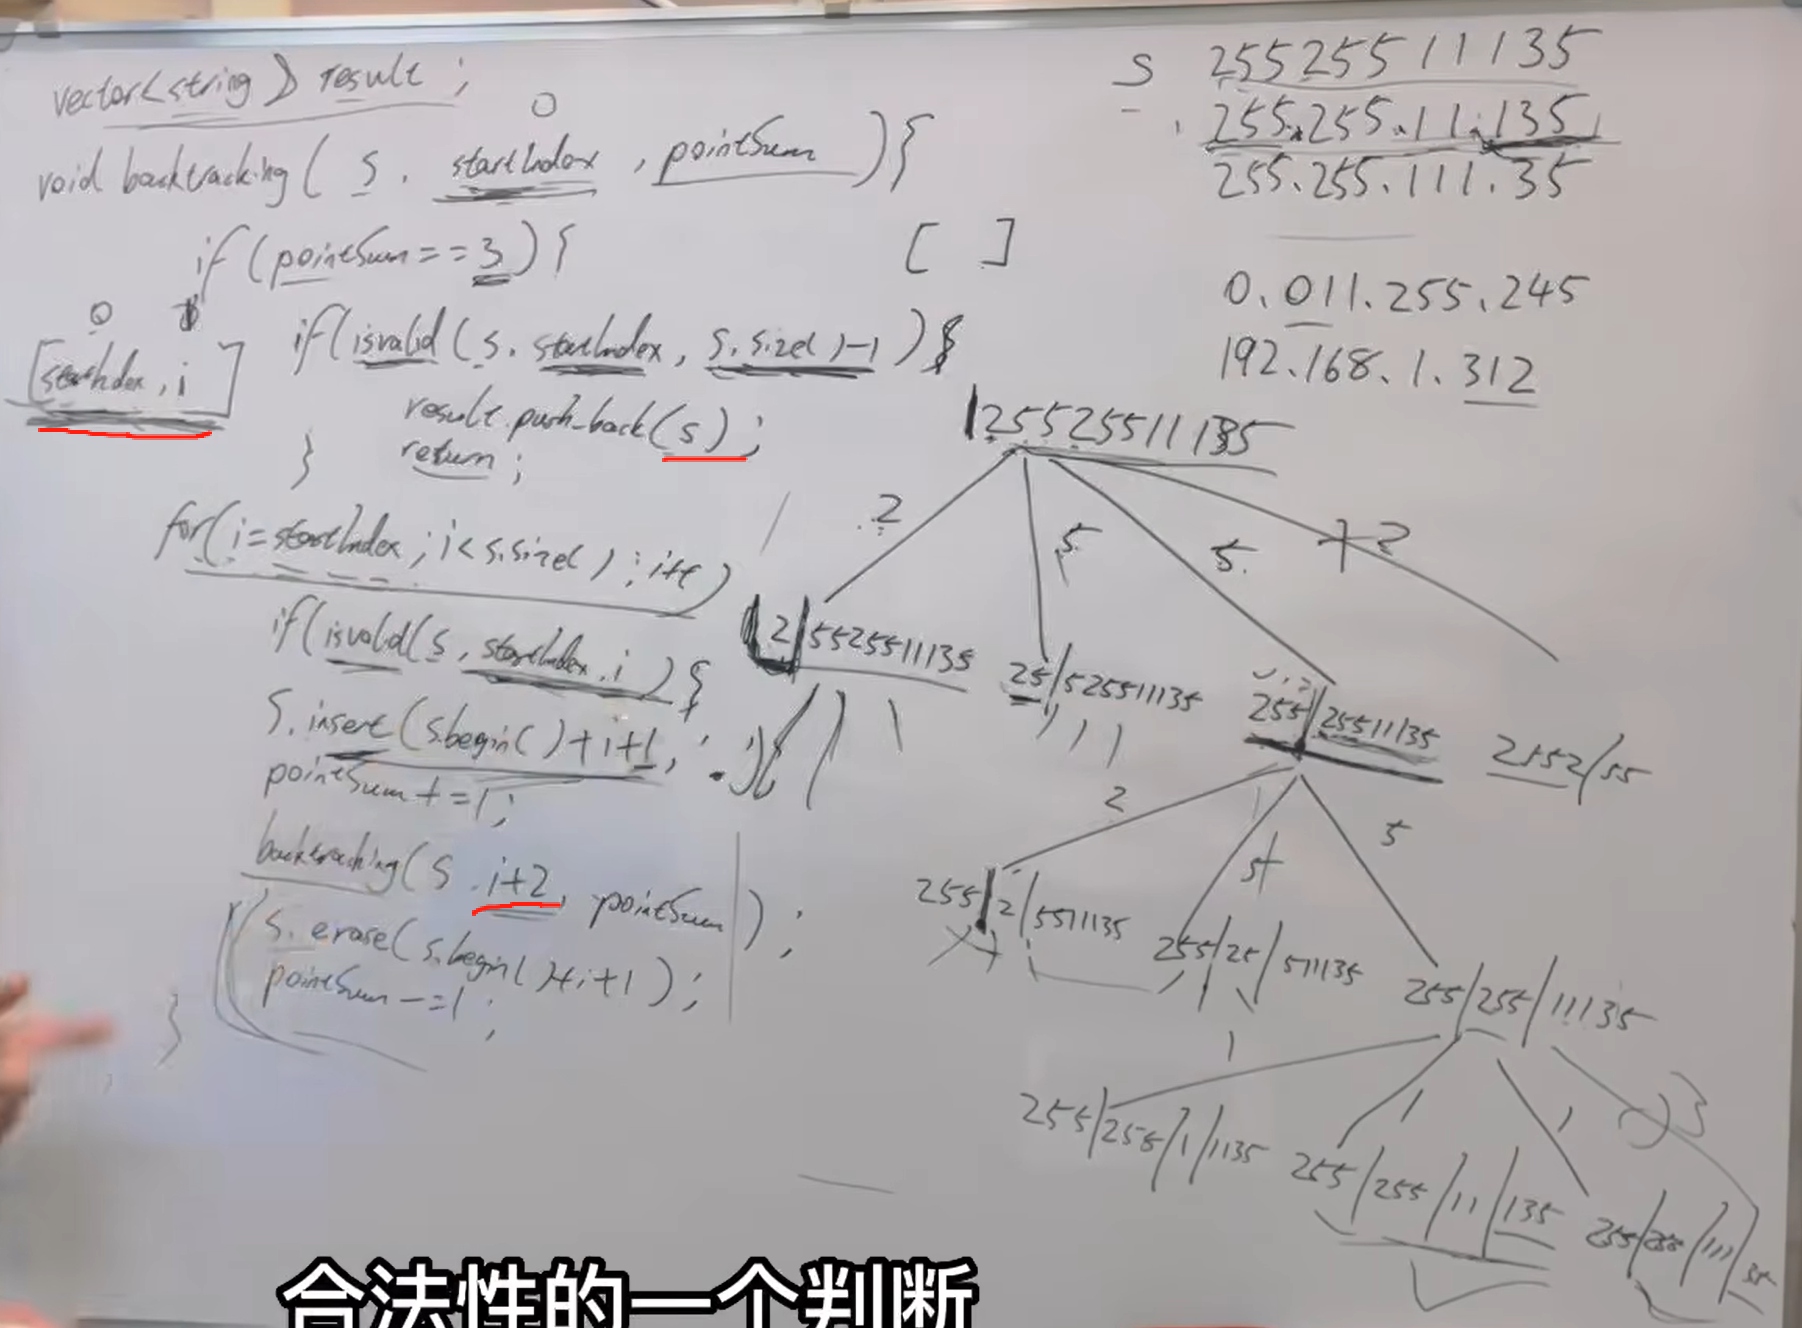 vector<string> result ;
void backtracking( s. startIndex , pointSum ){
if (pointSum==3){
[startIndex, i]
if(isvalid(s. startIndex, s.size()-1)){
result.push_back(s);
return ;
}
for(i=startIndex ; i<s.size() ; i++)
if(isvalid(s, startIndex, i)){
s.insert(s.begin()+i+1, '.');
pointSum+=1;
backtracking(s. i+2, pointSum );
s. erase(s.begin()+i+1);
pointSum-=1;
}
0
[ ]
0
s 25525511135
255.255.11.135
255.255.111.35
0.011.255.245
192.168.1.312
25525511135
2 5 5 2
2/5525511135
25/525511135
255/25511135
2552/55
2 5 5
255/2/5511135
255/25/511135
255/255/11135
1 1 1 3
255/255/1/1135
255/255/11/135
255/255/111/35
合法性的一个判断